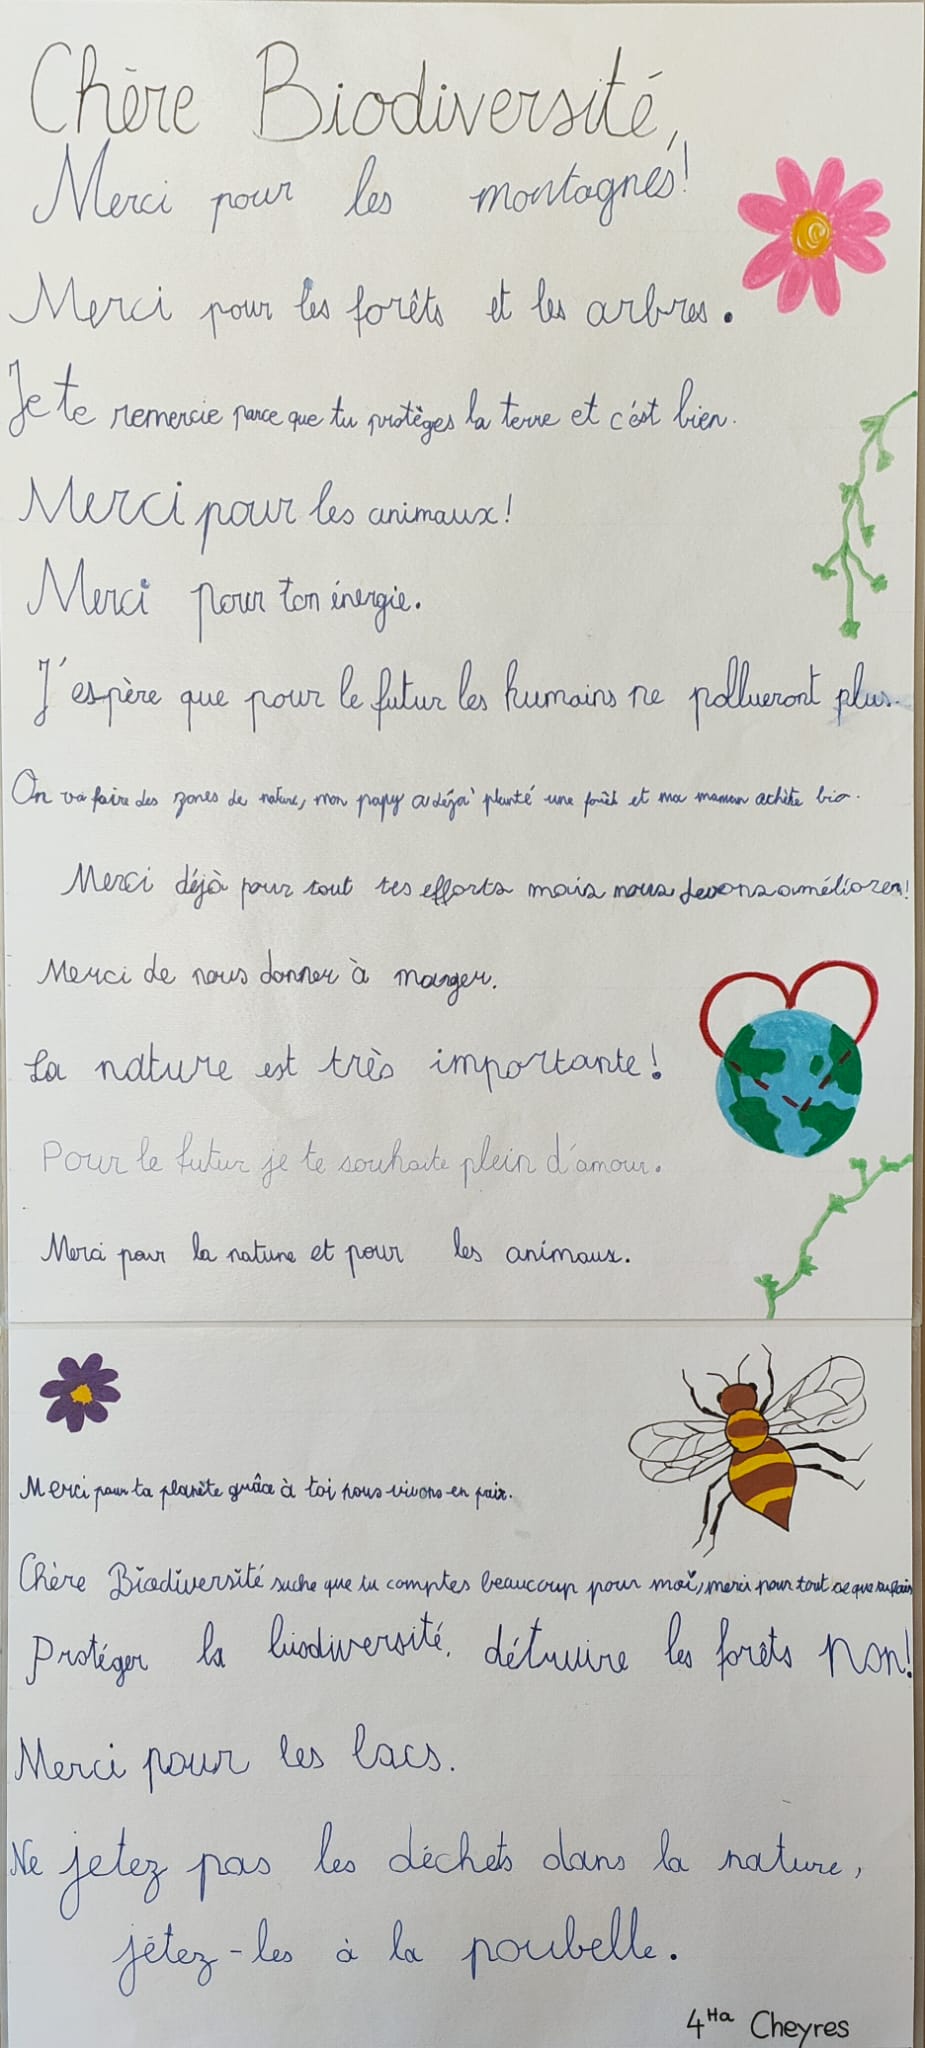 Chère Biodiversité,
Merci pour les montagnes!
Merci pour les forêts et les arbres.
Je te remercie parce que tu protèges la terre et c'est bien.
Merci pour les animaux!
Merci pour ton énergie.
J'espère que pour le futur les humains ne pollueront plus.
On va faire des zones de nature, mon papy a déjà planté une forêt et ma maman achète bio.
Merci déjà pour tout tes efforts mais nous devons améliorer!
Merci de nous donner à manger.
La nature est très importante!
Pour le futur je te souhaite plein d'amour.
Merci pour la nature et pour les animaux.
Merci pour ta planète grâce à toi nous vivons en paix.
Chère Biodiversité sache que tu comptes beaucoup pour moi, merci pour tout ce que tu fais
Protéger la biodiversité, détruire les forêts Non!
Merci pour les lacs.
Ne jetez pas les déchets dans la nature,
jétez-les à la poubelle.
4Ha Cheyres